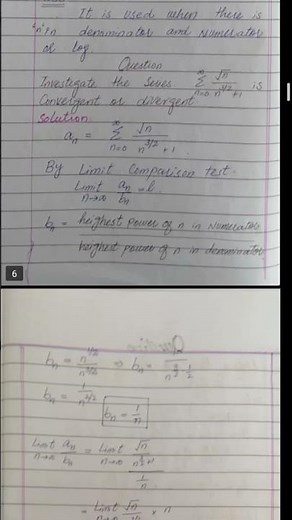 It is used when there is
"n" in denominator and Numerator
of log
Question
Investigate the Series ∑ n=0 ∞ √n / n^3/2 + 1 is
Convergent or divergent
Solution
an = ∑ n=0 ∞ √n / n^3/2 + 1
By Limit Comparison test
Limit n→∞ an/bn = l
bn = heighest power of n in Numerator
heighest power of n in denominator
6
bn = n^1/2 / n^3/2 ⇒ bn = 1 / n^3/2 - 1/2
bn = 1 / n^2/2
bn = 1/n
Limit n→∞ an/bn = Limit n→∞ √n / n^3/2 + 1
1/n
= Limit n→∞ √n × n